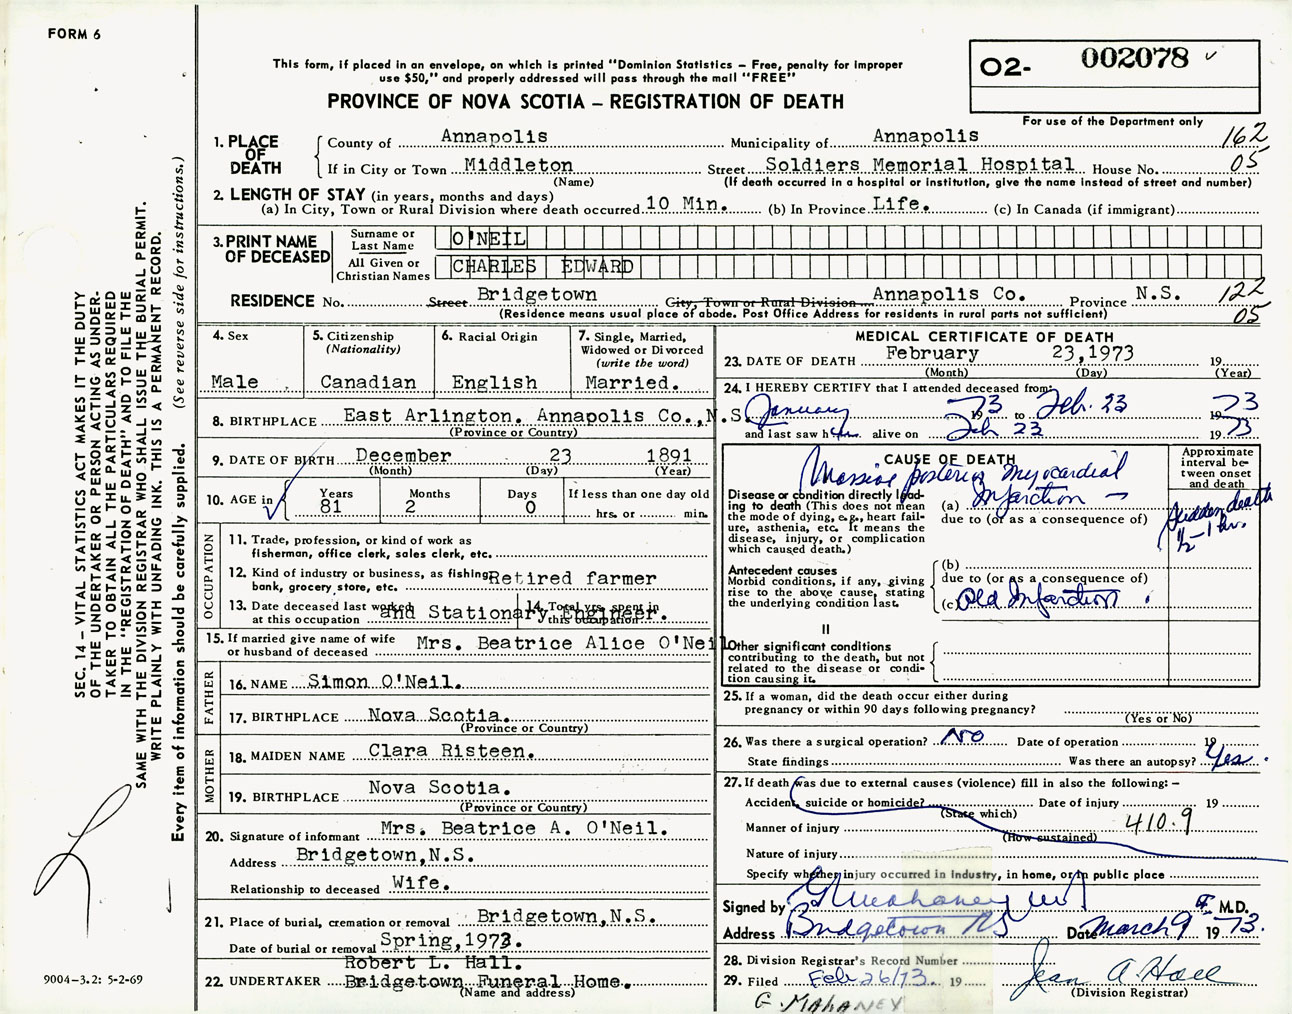 FORM 6
This form, if placed in an envelope, on which is printed "Dominion Statistics – Free, penalty for improper
use $50," and properly addressed will pass through the mail "FREE"
PROVINCE OF NOVA SCOTIA – REGISTRATION OF DEATH
O2- 002078
For use of the Department only
1. PLACE OF DEATH
County of Annapolis Municipality of Annapolis 162
If in City or Town Middleton Street Soldiers Memorial Hospital House No. 05
(Name) (If death occurred in a hospital or institution, give the name instead of street and number)
2. LENGTH OF STAY (in years, months and days)
(a) In City, Town or Rural Division where death occurred 10 Min. (b) In Province Life. (c) In Canada (if immigrant)
3. PRINT NAME OF DECEASED
Surname or Last Name O'NEIL
All Given or Christian Names CHARLES EDWARD
RESIDENCE No. Street Bridgetown City, Town or Rural Division Annapolis Co. Province N.S. 122
(Residence means usual place of abode. Post Office Address for residents in rural parts not sufficient) 05
4. Sex
Male
5. Citizenship
(Nationality)
Canadian
6. Racial Origin
English
7. Single, Married,
Widowed or Divorced
(write the word)
Married.
8. BIRTHPLACE East Arlington. Annapolis Co., N.S.
(Province or Country)
9. DATE OF BIRTH December 23 1891
(Month) (Day) (Year)
10. AGE in Years Months Days If less than one day old
81 2 0 hrs. or min.
OCCUPATION
11. Trade, profession, or kind of work as
fisherman, office clerk, sales clerk, etc.
12. Kind of industry or business, as fishing, Retired farmer
bank, grocery store, etc.
13. Date deceased last worked
at this occupation
14. Total yrs. spent in
this occupation
and Stationary Engineer.
15. If married give name of wife
or husband of deceased Mrs. Beatrice Alice O'Neil
FATHER
16. NAME Simon O'Neil.
17. BIRTHPLACE Nova Scotia.
(Province or Country)
MOTHER
18. MAIDEN NAME Clara Risteen.
19. BIRTHPLACE Nova Scotia.
(Province or Country)
20. Signature of informant Mrs. Beatrice A. O'Neil.
Address Bridgetown, N.S.
Relationship to deceased Wife.
21. Place of burial, cremation or removal Bridgetown, N.S.
Date of burial or removal Spring, 1973.
Robert L. Hall.
22. UNDERTAKER Bridgetown Funeral Home.
(Name and address)
MEDICAL CERTIFICATE OF DEATH
23. DATE OF DEATH February 23, 1973 19
(Month) (Day) (Year)
24. I HEREBY CERTIFY that I attended deceased from:
January 1973 to Feb. 23 1973
and last saw him alive on Feb 23 1973
CAUSE OF DEATH
Approximate
interval be-
tween onset
and death
Massive posterior myocardial
Disease or condition directly lead-
ing to death (This does not mean
the mode of dying, e.g., heart fail-
ure, asthenia, etc. It means the
disease, injury, or complication
which caused death.)
(a) Infarction –
due to (or as a consequence of)
Sudden death
½ – 1 hr.
Antecedent causes
Morbid conditions, if any, giving
rise to the above cause, stating
the underlying condition last.
(b)
due to (or as a consequence of)
(c) Old Infarction
II
Other significant conditions
contributing to the death, but not
related to the disease or condi-
tion causing it.
25. If a woman, did the death occur either during
pregnancy or within 90 days following pregnancy?
(Yes or No)
26. Was there a surgical operation? No Date of operation 19
State findings Was there an autopsy? Yes.
27. If death was due to external causes (violence) fill in also the following: –
Accident, suicide or homicide? Date of injury 19
(State which)
Manner of injury 410.9
(How sustained)
Nature of injury
Specify whether injury occurred in Industry, in home, or in public place
Signed by G Mahaney M.D.
Address Bridgetown NS Date March 9 1973.
28. Division Registrar's Record Number
29. Filed Feb 26/73. 19 Jean A. Hall
(Division Registrar)
G. MAHANEY
SEC. 14 – VITAL STATISTICS ACT MAKES IT THE DUTY
OF THE UNDERTAKER OR PERSON ACTING AS UNDER-
TAKER TO OBTAIN ALL THE PARTICULARS REQUIRED
IN THE "REGISTRATION OF DEATH" AND TO FILE THE
SAME WITH THE DIVISION REGISTRAR WHO SHALL ISSUE THE BURIAL PERMIT.
WRITE PLAINLY WITH UNFADING INK. THIS IS A PERMANENT RECORD.
Every item of information should be carefully supplied. (See reverse side for instructions.)
9004–3.2: 5-2-69